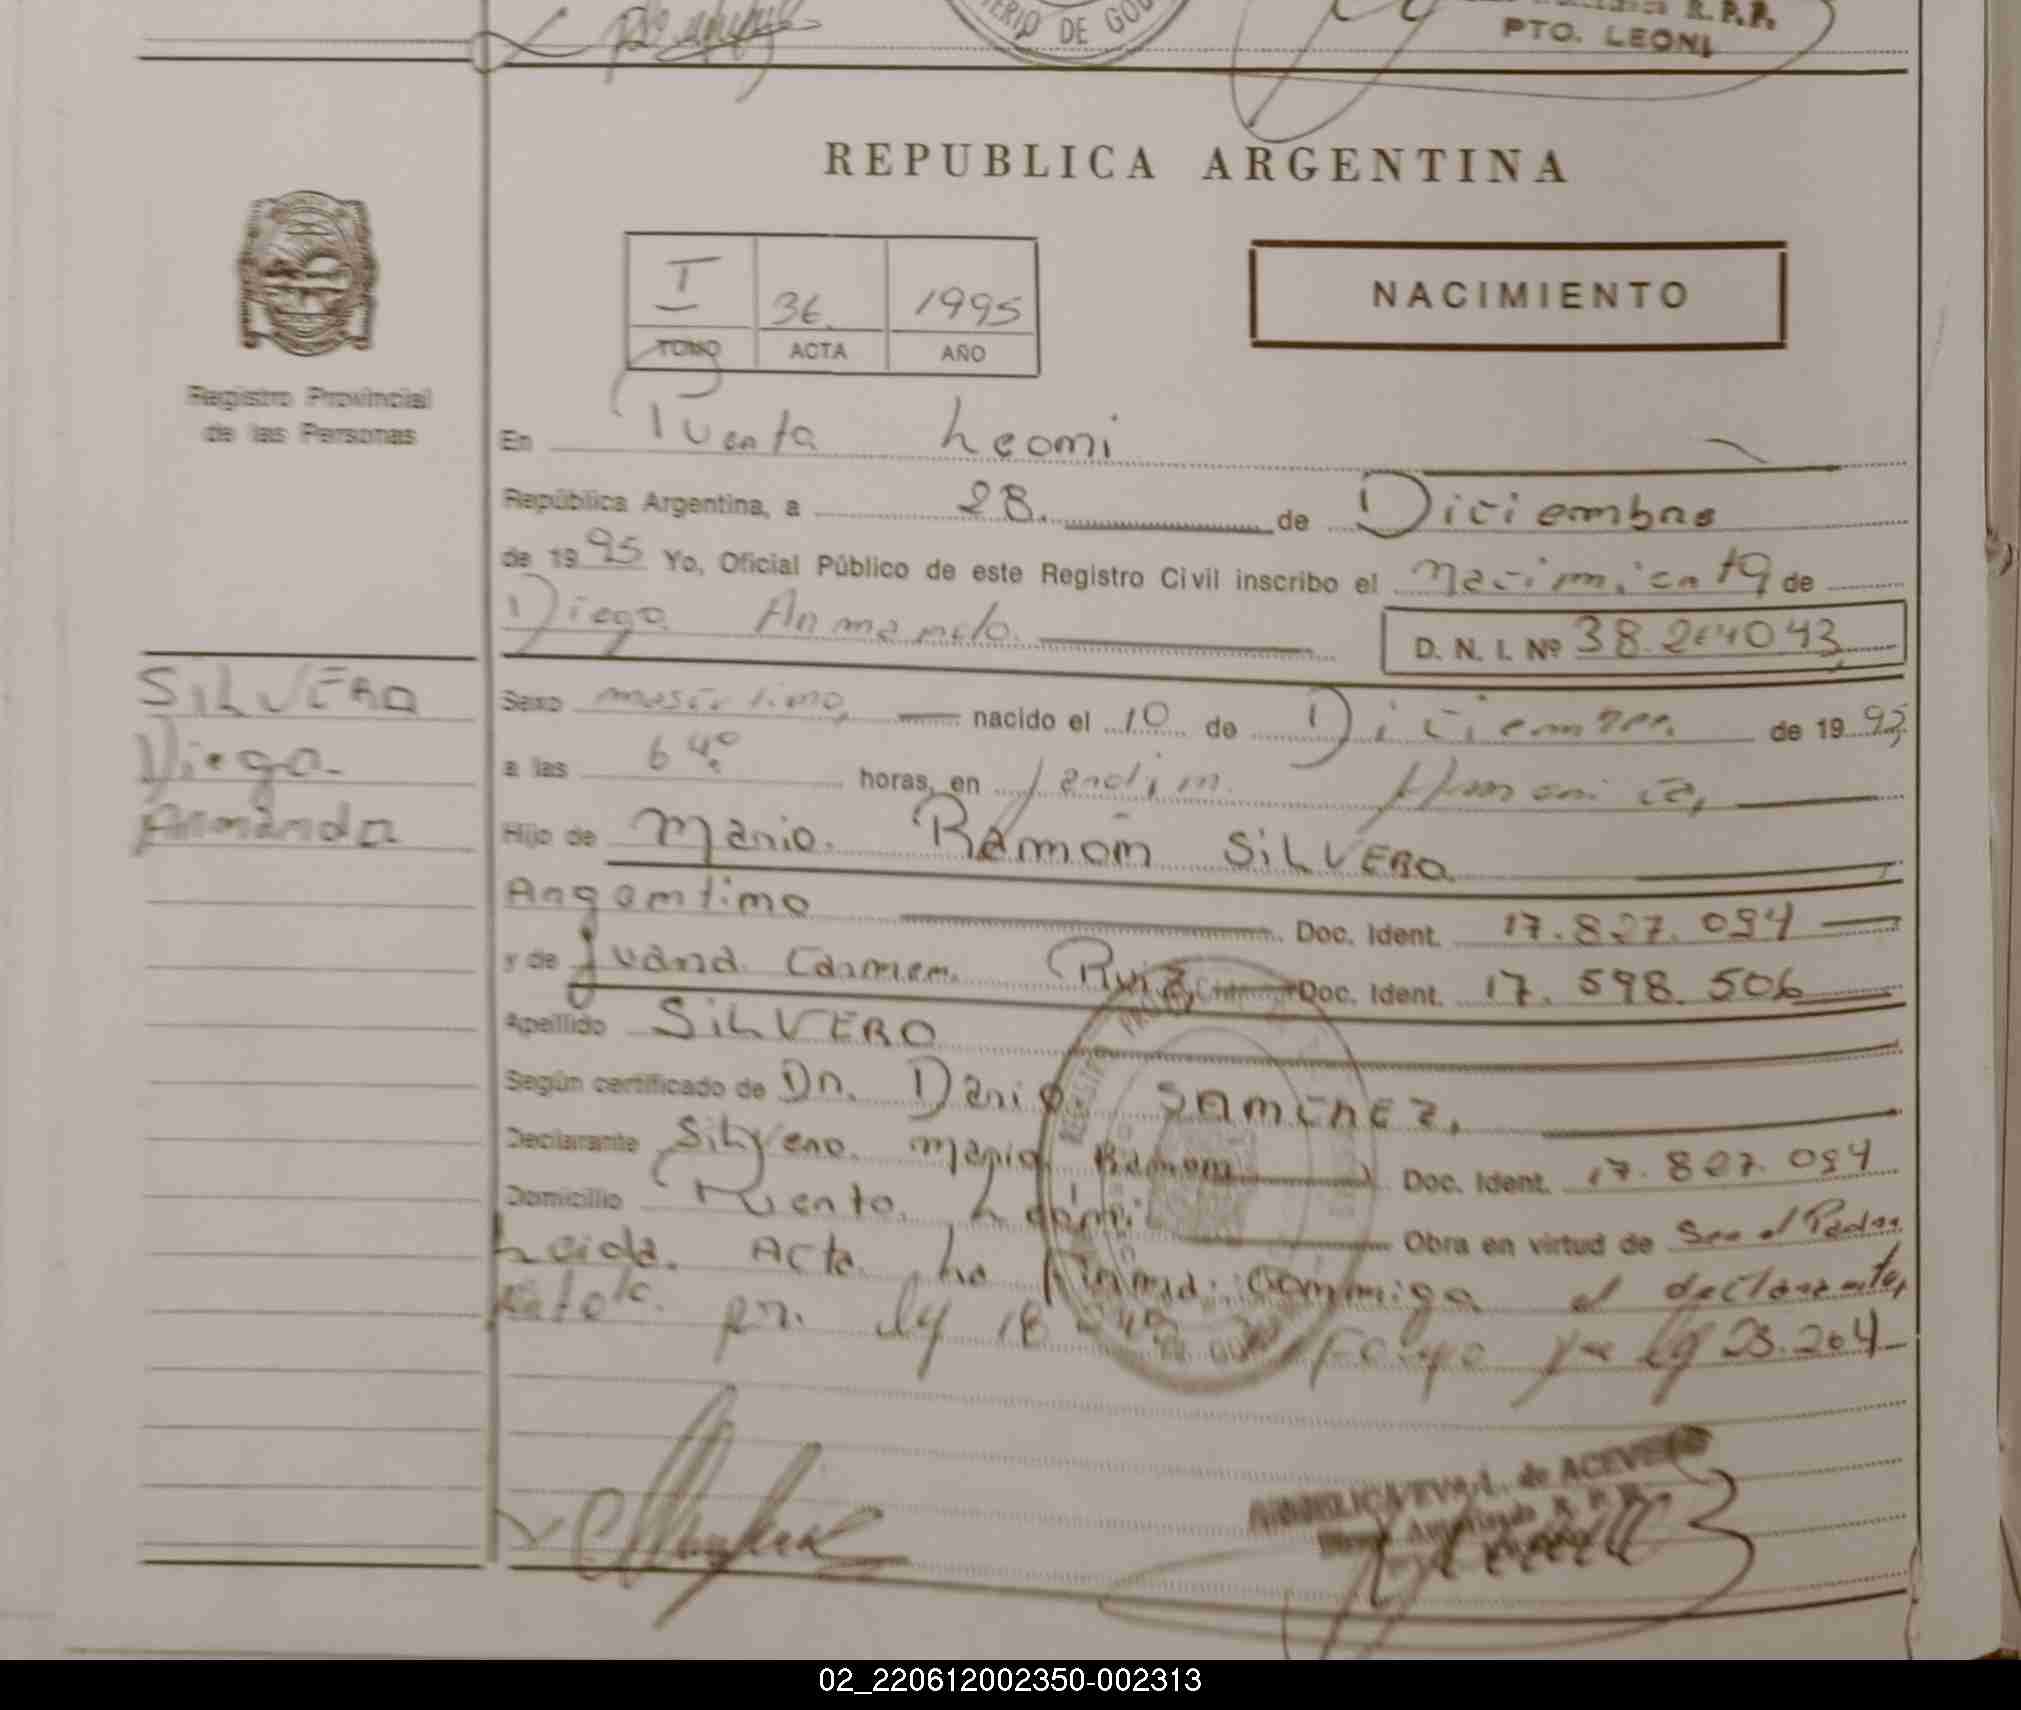 TERIO DE GOB
R.P.P.
PTO. LEONI
REPUBLICA ARGENTINA
I 36 1995
TOMO ACTA AÑO
NACIMIENTO
Registro Provincial
de las Personas
En Puerto Leoni
República Argentina, a 28. de Diciembre
de 1995 Yo, Oficial Público de este Registro Civil inscribo el nacimiento de
Diego Armando.
D. N. I. Nº 38.204043
SILVERO
Diego
Armando
Sexo masculino, nacido el 10 de Diciembre de 1995
a las 6 40 horas, en Jardín America,
Hijo de Mario. Ramón SILVERO
Argentino Doc. Ident. 17.827.094
y de Juana Carmen Ruiz Doc. Ident. 17.598.506
Apellido SILVERO
Según certificado de Dr. Dario SANCHEZ,
Declarante Silvero Mario Ramon Doc. Ident. 17.827.094
Domicilio Puerto Leoni Obra en virtud de Ser el Padre
Leida Acta la firma conmigo el declarante,
ley 18 ley 23.204
ANGELICA EVA L. de ACEVEDO
02_220612002350-002313